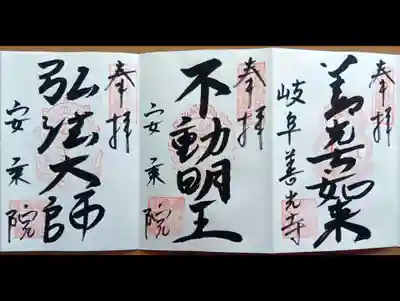 奉拝
善光寺如来
岐阜善光寺
奉拝
不動明王
安乗院
奉拝
弘法大師
安乗院